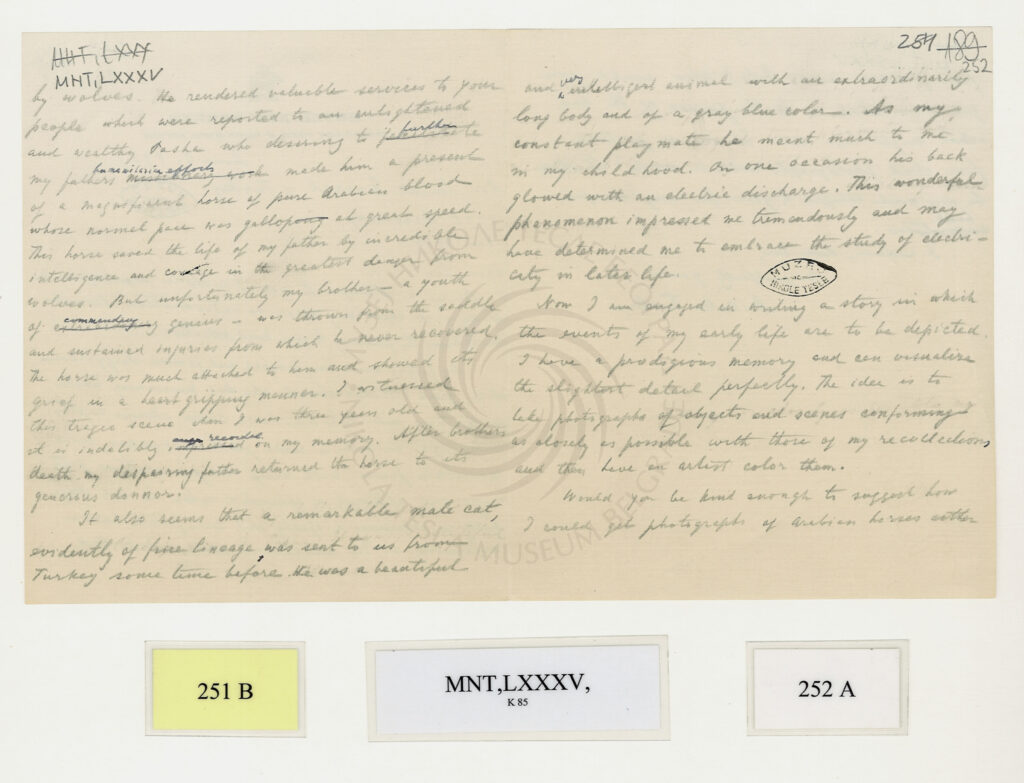 MNT, LXXV
MNT, LXXXV
by wolves. He rendered valuable services to your
people which were reported to an enlightened
and wealthy Pasha who desiring to further
my fathers humanitarian efforts made him a present
of a magnificent horse of pure Arabian blood
whose normal pace was galloping at great speed.
This horse saved the life of my father by incredible
intelligence and courage in the greatest danger from
wolves. But unfortunately my brother – a youth
of commanding genius – was thrown from the saddle
and sustained injuries from which he never recovered.
The horse was much attached to him and showed its
grief in a heart gripping manner. I witnessed
this tragic scene when I was three years old and
it is indelibly recorded on my memory. After brothers
death my despairing father returned the horse to its
generous donnor.
It also seems that a remarkable male cat,
evidently of fine lineage, was sent to us from
Turkey some time before. He was a beautiful
251 189
252
and very intelligent animal with an extraordinarily
long body and of a gray blue color. As my
constant playmate he meant much to me
in my childhood. On one occasion his back
glowed with an electric discharge. This wonderful
phenomenon impressed me tremendously and may
have determined me to embrace the study of electri-
city in later life.
MUZEJ
NIKOLE TESLE
Now I am engaged in writing a story in which
the events of my early life are to be depicted.
I have a prodigious memory and can visualize
the slightest detail perfectly. The idea is to
take photographs of objects and scenes conforming
as closely as possible with those of my recollections
and then have an artist color them.
Would you be kind enough to suggest how
I could get photographs of Arabian horses either
NIKOLA TESLA MUSEUM BELGRADE
251 B
MNT,LXXXV,
K 85
252 A